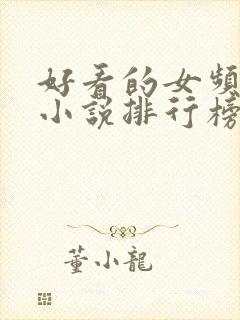 好看的女频
小说排行榜
董小龙